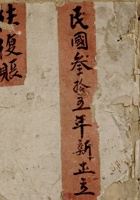 民國叁拾五年新正立
往復賬